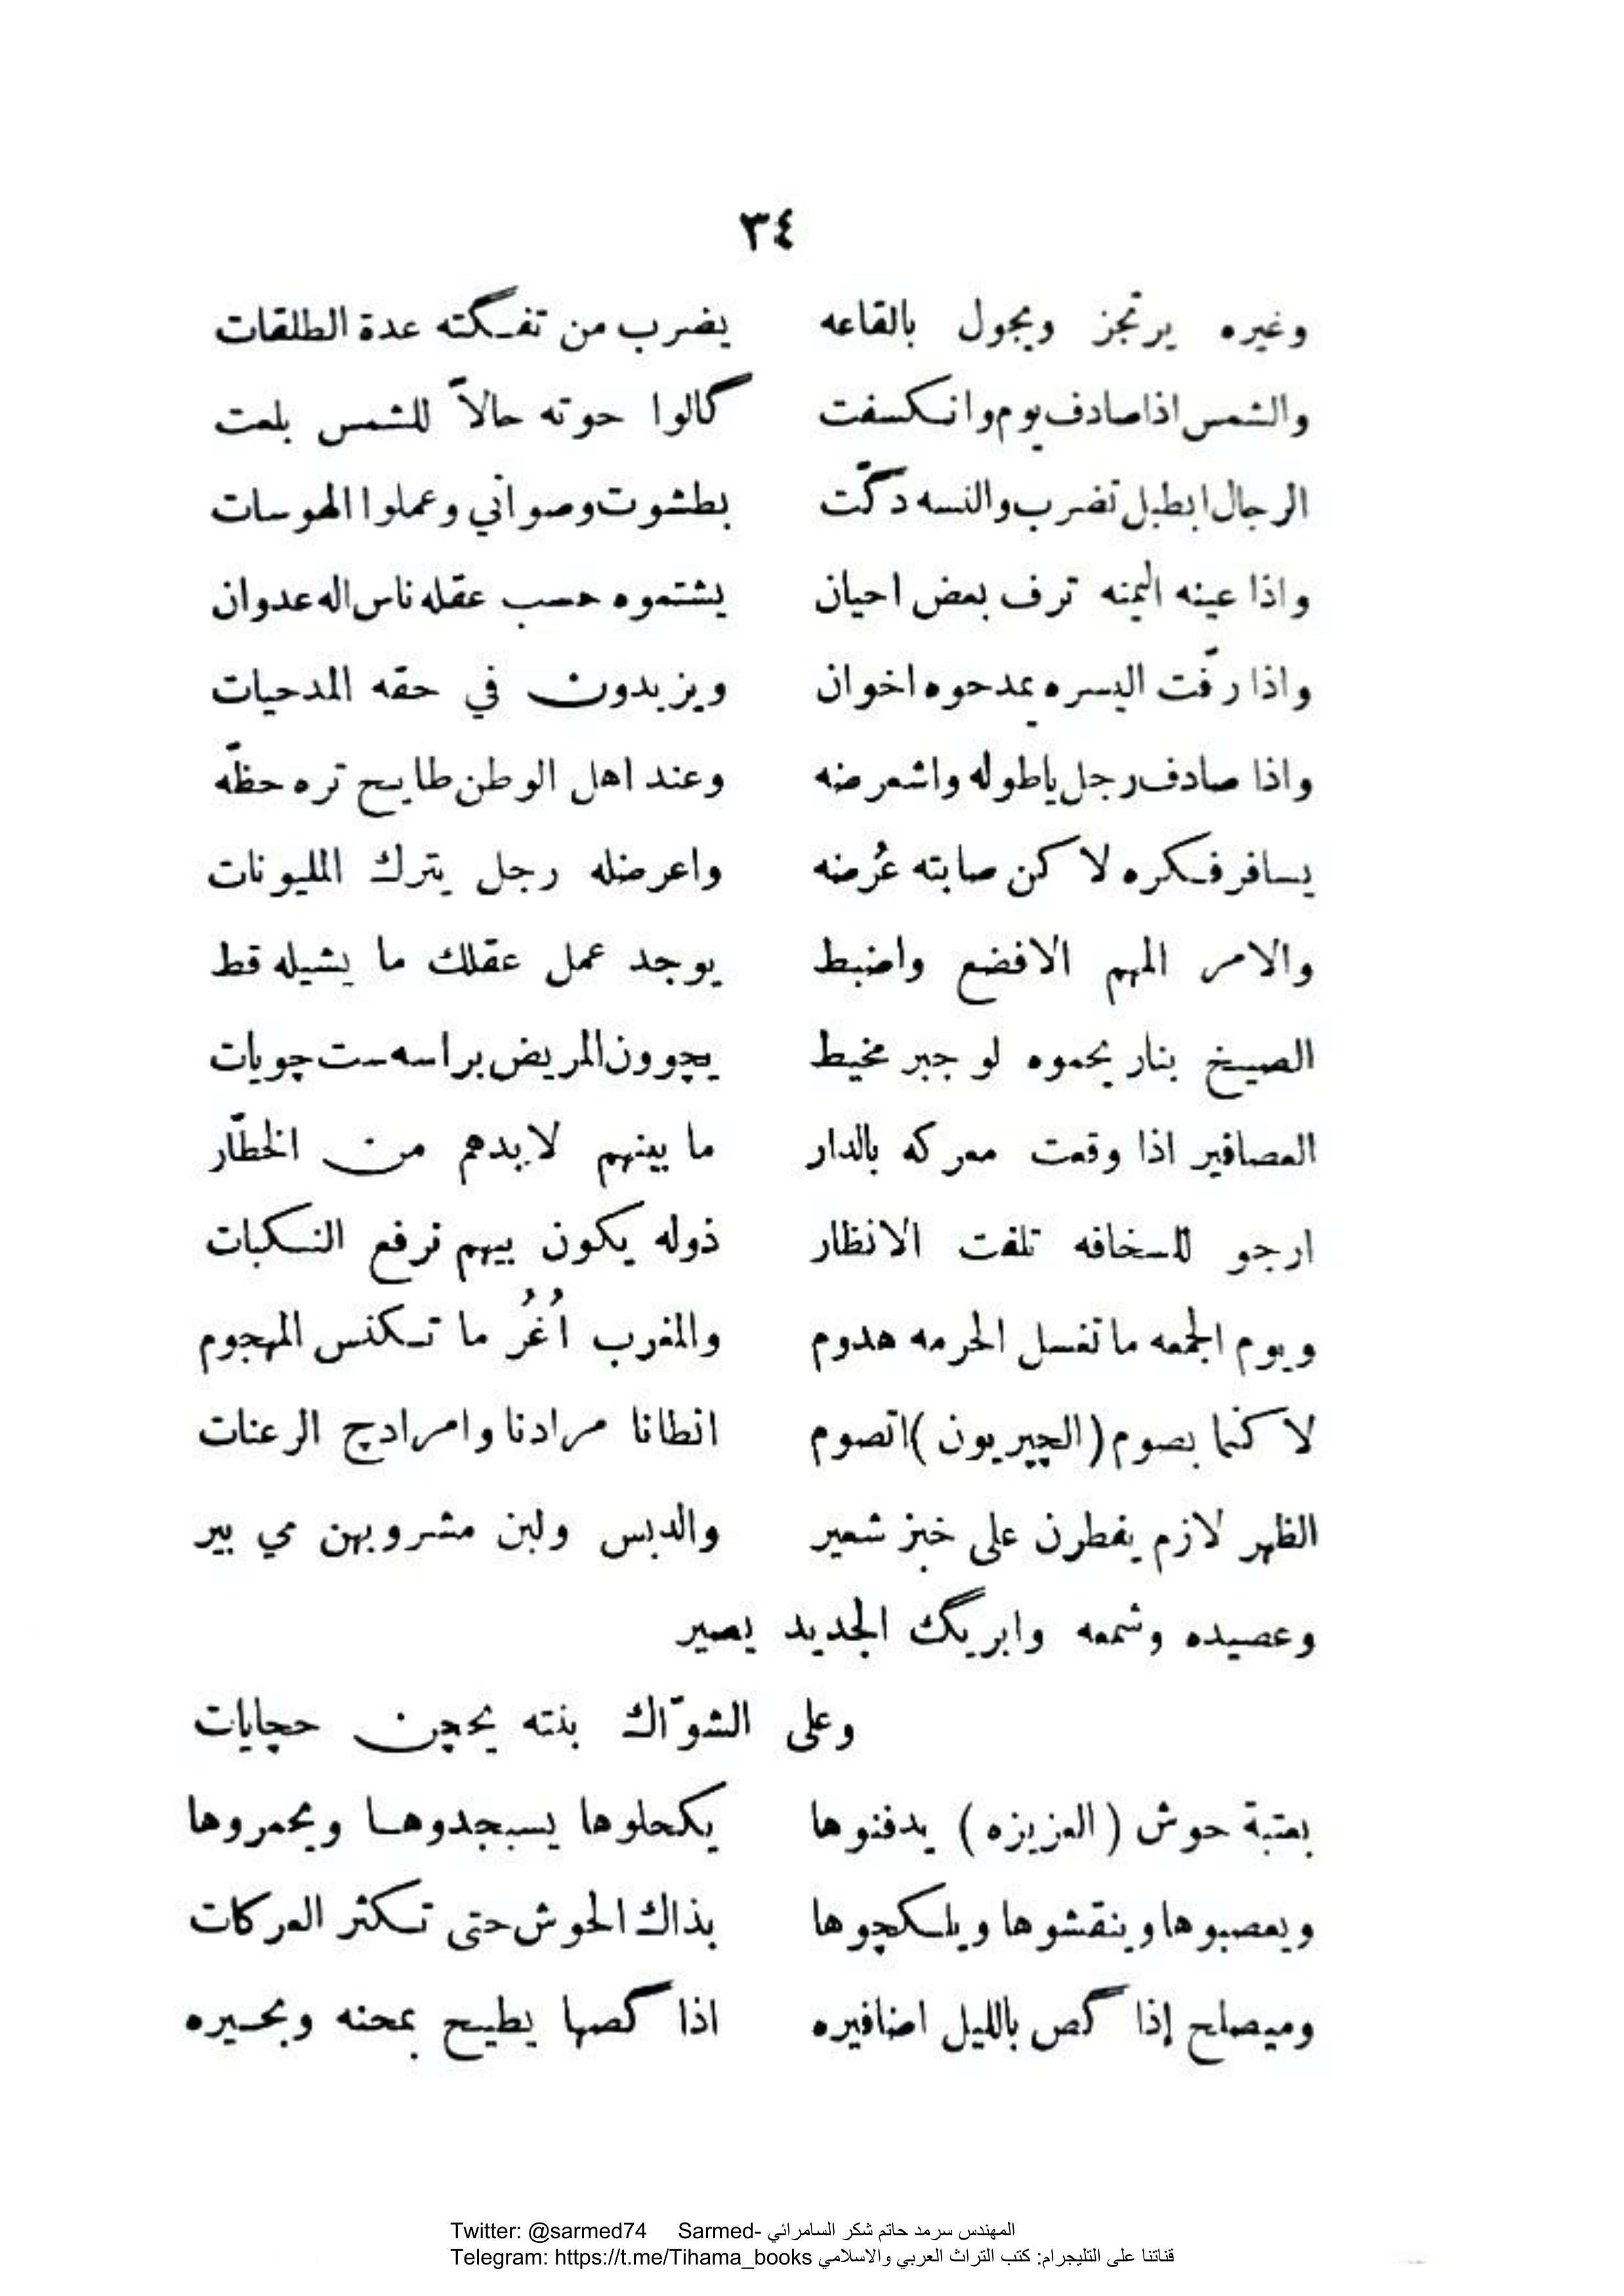 ٣٤
وغيره يرتجز ويجول بالقاعه يضرب من تفـگته عدة الطلقات
والشمس اذا صادف يوم وانـكسفت گالوا حوته حالاً للشمس بلعت
الرجال ابطبل تضرب والنسه دگت بطشوت وصواني وعملوا الهوسات
واذا عينه اليمنه ترف بعض احيان يشتموه حسب عقله ناس اله عدوان
واذا رفّت اليسره يمدحوه اخوان ويزيدون في حقه المدحيات
واذا صادف رجل ياطوله واشعرضه وعند اهل الوطن طايح تره حظّه
يسافر فـكره لاكن صابته عُرضه واعرضله رجل يترك المليونات
والامر المهم الافضع واضبط يوجد عمل عقلك ما يشيله قط
الصيخ بنار يحموه لو جبر مخيط يچوون المريض براسه ست چويات
العصافير اذا وقعت معركه بالدار ما بينهم لابدهم من الخطّار
ارجو للسخافه تلفت الانظار ذوله يكون بيهم نرفع النـكبات
ويوم الجمعه ما تغسل الحرمه هدوم والمغرب اُغُر ما تـكنس المهجوم
لاكنما بصوم (الچيريون) اتصوم انطانا مرادنا وامرادچ الرعنات
الظهر لازم يفطرن على خبز شعير والدبس ولبن مشروبهن مي بير
وعصيده وشمعه وابريگ الجديد يصير
وعلى الشوّاك بنته يحچن حچايات
بعتبة حوش (العزيزه) يدفنوها يكحلوها يسبجدوها ويحمروها
ويعصبوها وينقشوها ويلـكچوها بذاك الحوش حتى تـكثر العركات
وميصلح إذا گص بالليل اضافيره اذا گصها يطيح بمحنه وبحيره
Twitter: @sarmed74 Sarmed- المهندس سرمد حاتم شكر السامرائي
Telegram: https://t.me/Tihama_books قناتنا على التليجرام: كتب التراث العربي والاسلامي